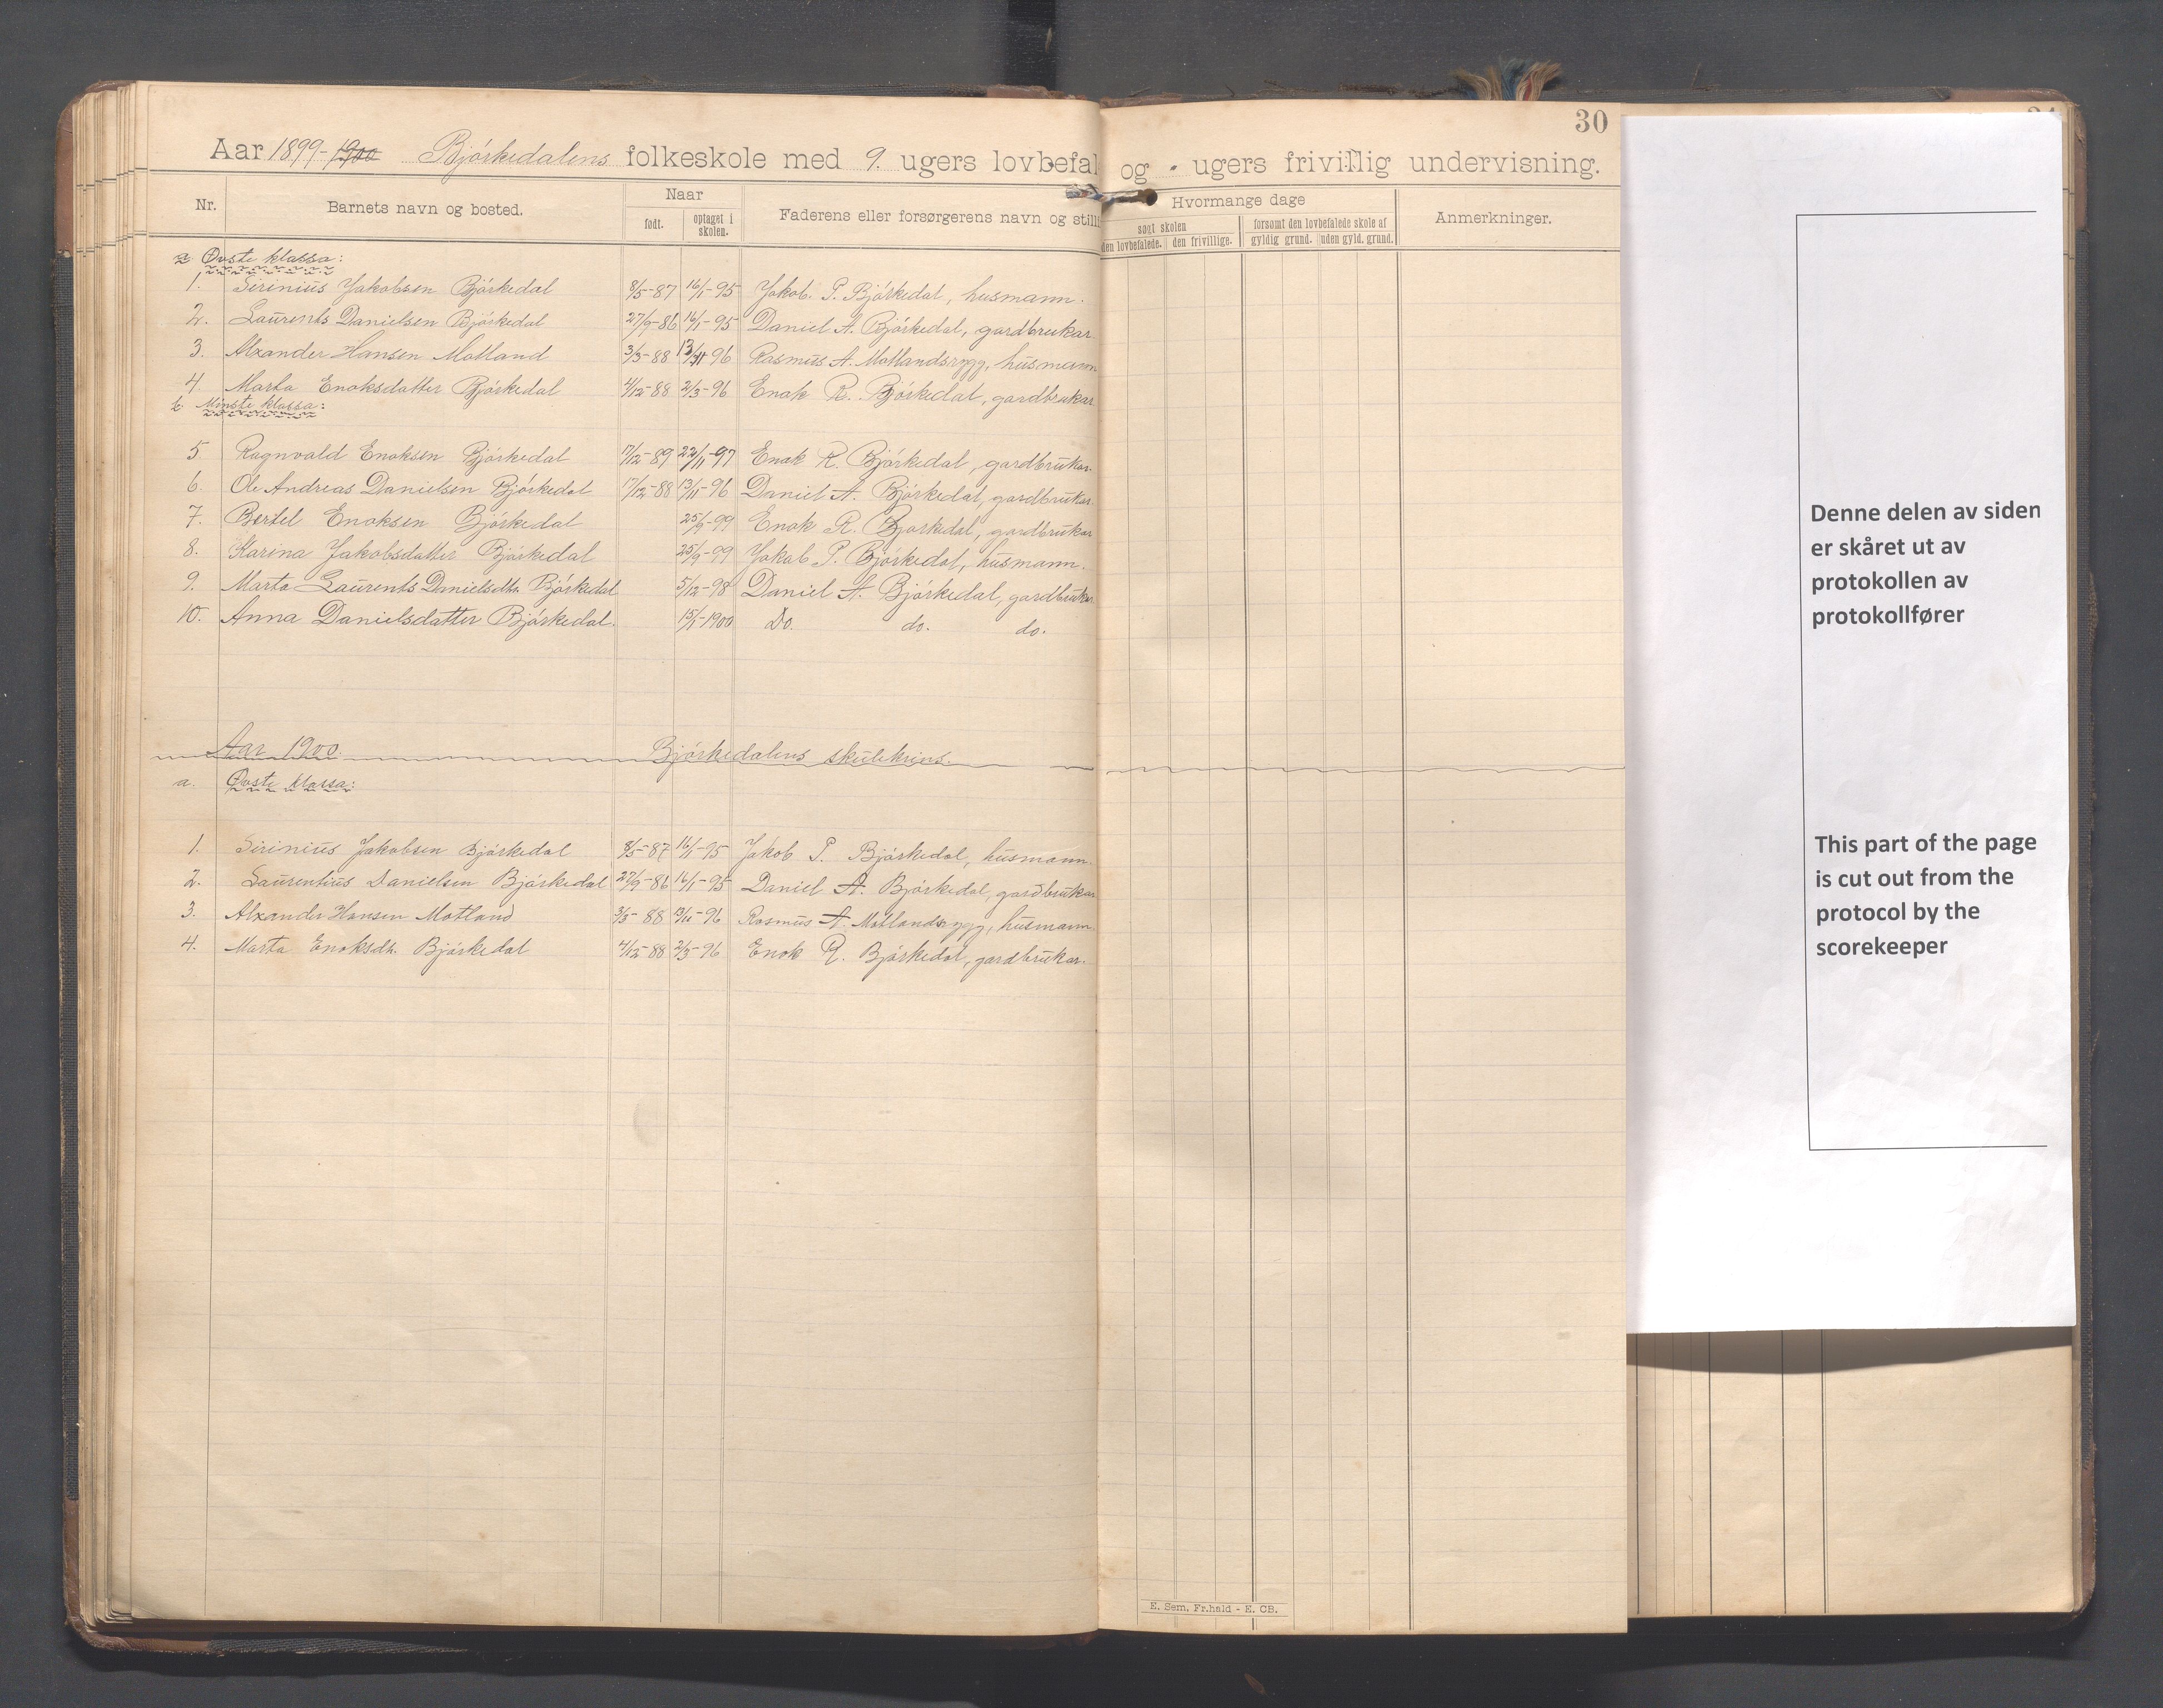 30
Aar 1899-1900 Bjórkedalens folkeskole med 9. ugers lovbefal og - ugers frivillig undervisning.
Nr. Barnets navn og bosted. Naar født. optaget i skolen. Faderens eller forsørgerens navn og still Hvormange dage søgt skolen den lovbefalede. den frivillige. forsømt den lovbefalede skole af gyldig grund. uden gyld. grund. Anmerkninger.
a Øvste klassa:
1. Sirinius Jakobsen Bjórkedal 8/5-87 16/1-95 Jakob P. Bjórkedal, husmann.
2. Laurents Danielsen Bjórkedal 27/9-86 16/1-95 Daniel A. Bjórkedal, gardbrukar.
3. Alxander Hansen Motland 3/3-88 13/11 96 Rasmus A. Motlandsrygg, husmann
4 Marta Enoksdatter Bjórkedal 4/12-88 2/3-96 Enok R. Bjórkedal, gardbrukar
b. Minste klassa:
5 Ragnvald Enoksen Bjórkedal 17/12-89 22/11-97 Enok R. Bjórkedal, gardbrukar.
6. Ole Andreas Danielsen Bjórkedal 17/12-88 13/11-96 Daniel A. Bjórkedal, gardbrukar.
7. Bertel Enoksen Bjórkedal 25/9-99 Enok R. Bjorkedal, gardbrukar
8. Karina Jakobsdatter Bjórkedal 25/9-99 Jakob P. Bjórkedal, husmann.
9. Marta Laurents Danielsdtr. Bjórkedal 5/12-98 Daniel A. Bjórkedal, gardbrukar
10. Anna Danielsdatter Bjórkedal. 15/1-1900 Do. do. do.
Aar 1900. Bjórkedalens skulekrins.
a. Øvste klassa:
1. Sirinius Jakobsen Bjórkedal 8/5-87 16/1-95 Jakob P. Bjórkedal, husmann.
2. Laurentius Danielsen Bjórkedal 27/9-86 16/1-95 Daniel A. Bjórkedal, gardbrukar
3. Alxander Hansen Motland 3/3-88 13/11-96 Rasmus A. Motlandsrygg, husmann
4. Marta Enoksdtr. Bjórkedal 4/12-88 2/3-96 Enok R. Bjórkedal, gardbrukar.
E. Sem, Fr.hald - E. CB.
Denne delen av siden
er skåret ut av
protokollen av
protokollfører
This part of the page
is cut out from the
protocol by the
scorekeeper